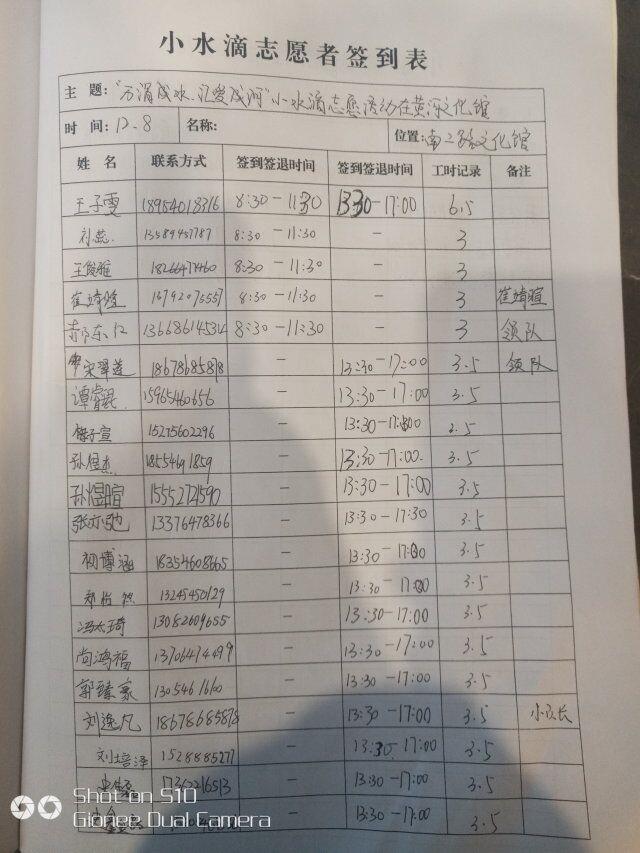 小水滴志愿者签到表
主 题: "万涓成水、汇爱成河"小水滴志愿活动在黄河文化馆
时 间: 12.8 名称: 位置: 南二路文化馆
姓 名 联系方式 签到签退时间 签到签退时间 工时记录 备注
王子雯 18954018316 8:30-11:30 13:30-17:00 6.5
刘蕊 13589457787 8:30-11:30 - 3
王俊雅 18266471460 8:30-11:30 - 3
崔婧暄 8:30-11:30 - 3 崔婧暄
郝东红 13668614531 8:30-11:30 - 3 领队
宋翠莲 18678685878 - 13:30-17:00 3.5 领队
谭睿琨 15965460656 - 13:30-17:00 3.5
子宣 15275602296 - 13:30-17:00 3.5
孙煜杰 - 13:30-17:00. 3.5
孙煜暄 15552721590 - 13:30-17:00 3.5
张亦弛 13376478366 - 13:30-17:30 3.5
初博涵 18354608665 - 13:30-17:00 3.5
13245450129 - 13:30-17:00 3.5
冯太琦 13082609655 - 13:30-17:00 3.5
尚鸿福 13706474499 - 13:30-17:00 3.5
郭臻豪 - 13:30-17:00 3.5
刘逸凡 18678685878 - 13:30-17:00 3.5 小队长
刘培泽 15288885277 - 13:30-17:00 3.5
17362216513 - 13:30-17:00 3.5
- 13:30-17:00 3.5
Shot on S10
Gionee Dual Camera